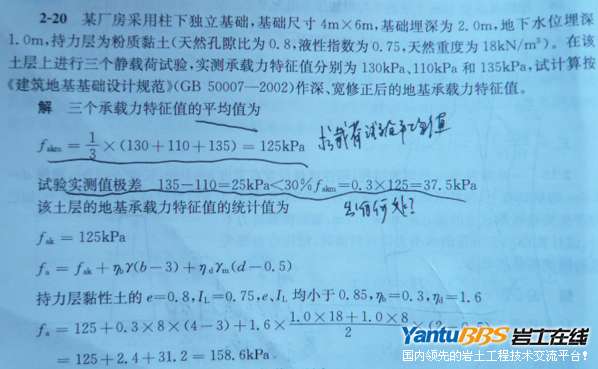 2-20 某厂房采用柱下独立基础,基础尺寸4m×6m,基础埋深为2.0m,地下水位埋深
1.0m,持力层为粉质黏土(天然孔隙比为0.8,液性指数为0.75,天然重度为18kN/m³)。在该
土层上进行三个静载荷试验,实测承载力特征值分别为130kPa、110kPa和135kPa,试计算按
《建筑地基基础设计规范》(GB 50007—2002)作深、宽修正后的地基承载力特征值。
解 三个承载力特征值的平均值为
fakm = 1/3 ×(130+110+135)=125kPa
试验实测值极差 135-110=25kPa<30%fakm=0.3×125=37.5kPa
出自何处?
该土层的地基承载力特征值的统计值为
fak = 125kPa
fa = fak + ηbγ(b-3)+ηdγm(d-0.5)
持力层黏性土的e=0.8,IL=0.75,e、IL均小于0.85,ηb=0.3,ηd=1.6
fa = 125+0.3×8×(4-3)+1.6× 1.0×18+1.0×8/2 ×(2-0.5)
=125+2.4+31.2=158.6kPa
YantuBBS岩土在线
国内领先的岩土工程技术交流平台!